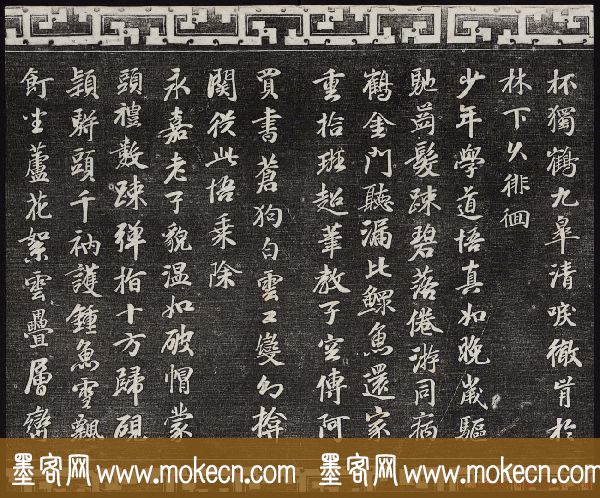 杯獨鶴九皋清唳徹於
林下久徘徊
少年學道悟真如晚歲驅
馳齒髮疎碧落倦游同病
鶴金門聽漏比鰥魚還家
重拾班超筆教子空傳阿
買書蒼狗白雲工變幻榆
關從此悟乘除
永嘉老子貌温如破帽蒙
頭禮數疎彈指十方歸硯
頴駢頭千衲護鍾魚雪飄
飣坐蘆花絮雲疊層巒
墨客网 www.mokecn.com 墨客网 www.mokecn.com